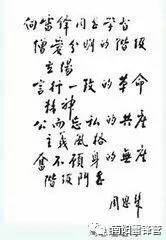 向雷锋同志学习
憎爱分明的阶级
立场
言行一致的革命
精神
公而忘私的共产
主义风格
奋不顾身的无产
阶级斗志
周恩来